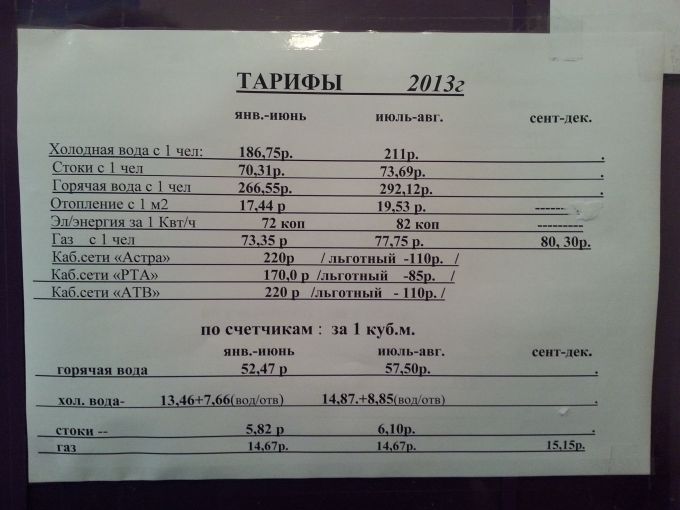 ТАРИФЫ 2013г
янв.-июнь июль-авг. сент-дек.
Холодная вода с 1 чел: 186,75р. 211р. .
Стоки с 1 чел 70,31р. 73,69р. .
Горячая вода с 1 чел 266,55р. 292,12р. .
Отопление с 1 м2 17,44 р 19,53 р. ------
Эл/энергия за 1 Квт/ч 72 коп 82 коп ---------
Газ с 1 чел 73,35 р 77,75 р. 80, 30р.
Каб.сети «Астра» 220р / льготный -110р. /
Каб.сети «РТА» 170,0 р /льготный -85р. /
Каб.сети «АТВ» 220 р /льготный - 110р. /
по счетчикам : за 1 куб.м.
янв.-июнь июль-авг. сент-дек.
горячая вода 52,47 р 57,50р. .
хол. вода- 13,46+7,66(вод/отв) 14,87.+8,85(вод/отв) .
стоки -- 5,82 р 6,10р. .
газ 14,67р. 14,67р. 15,15р.